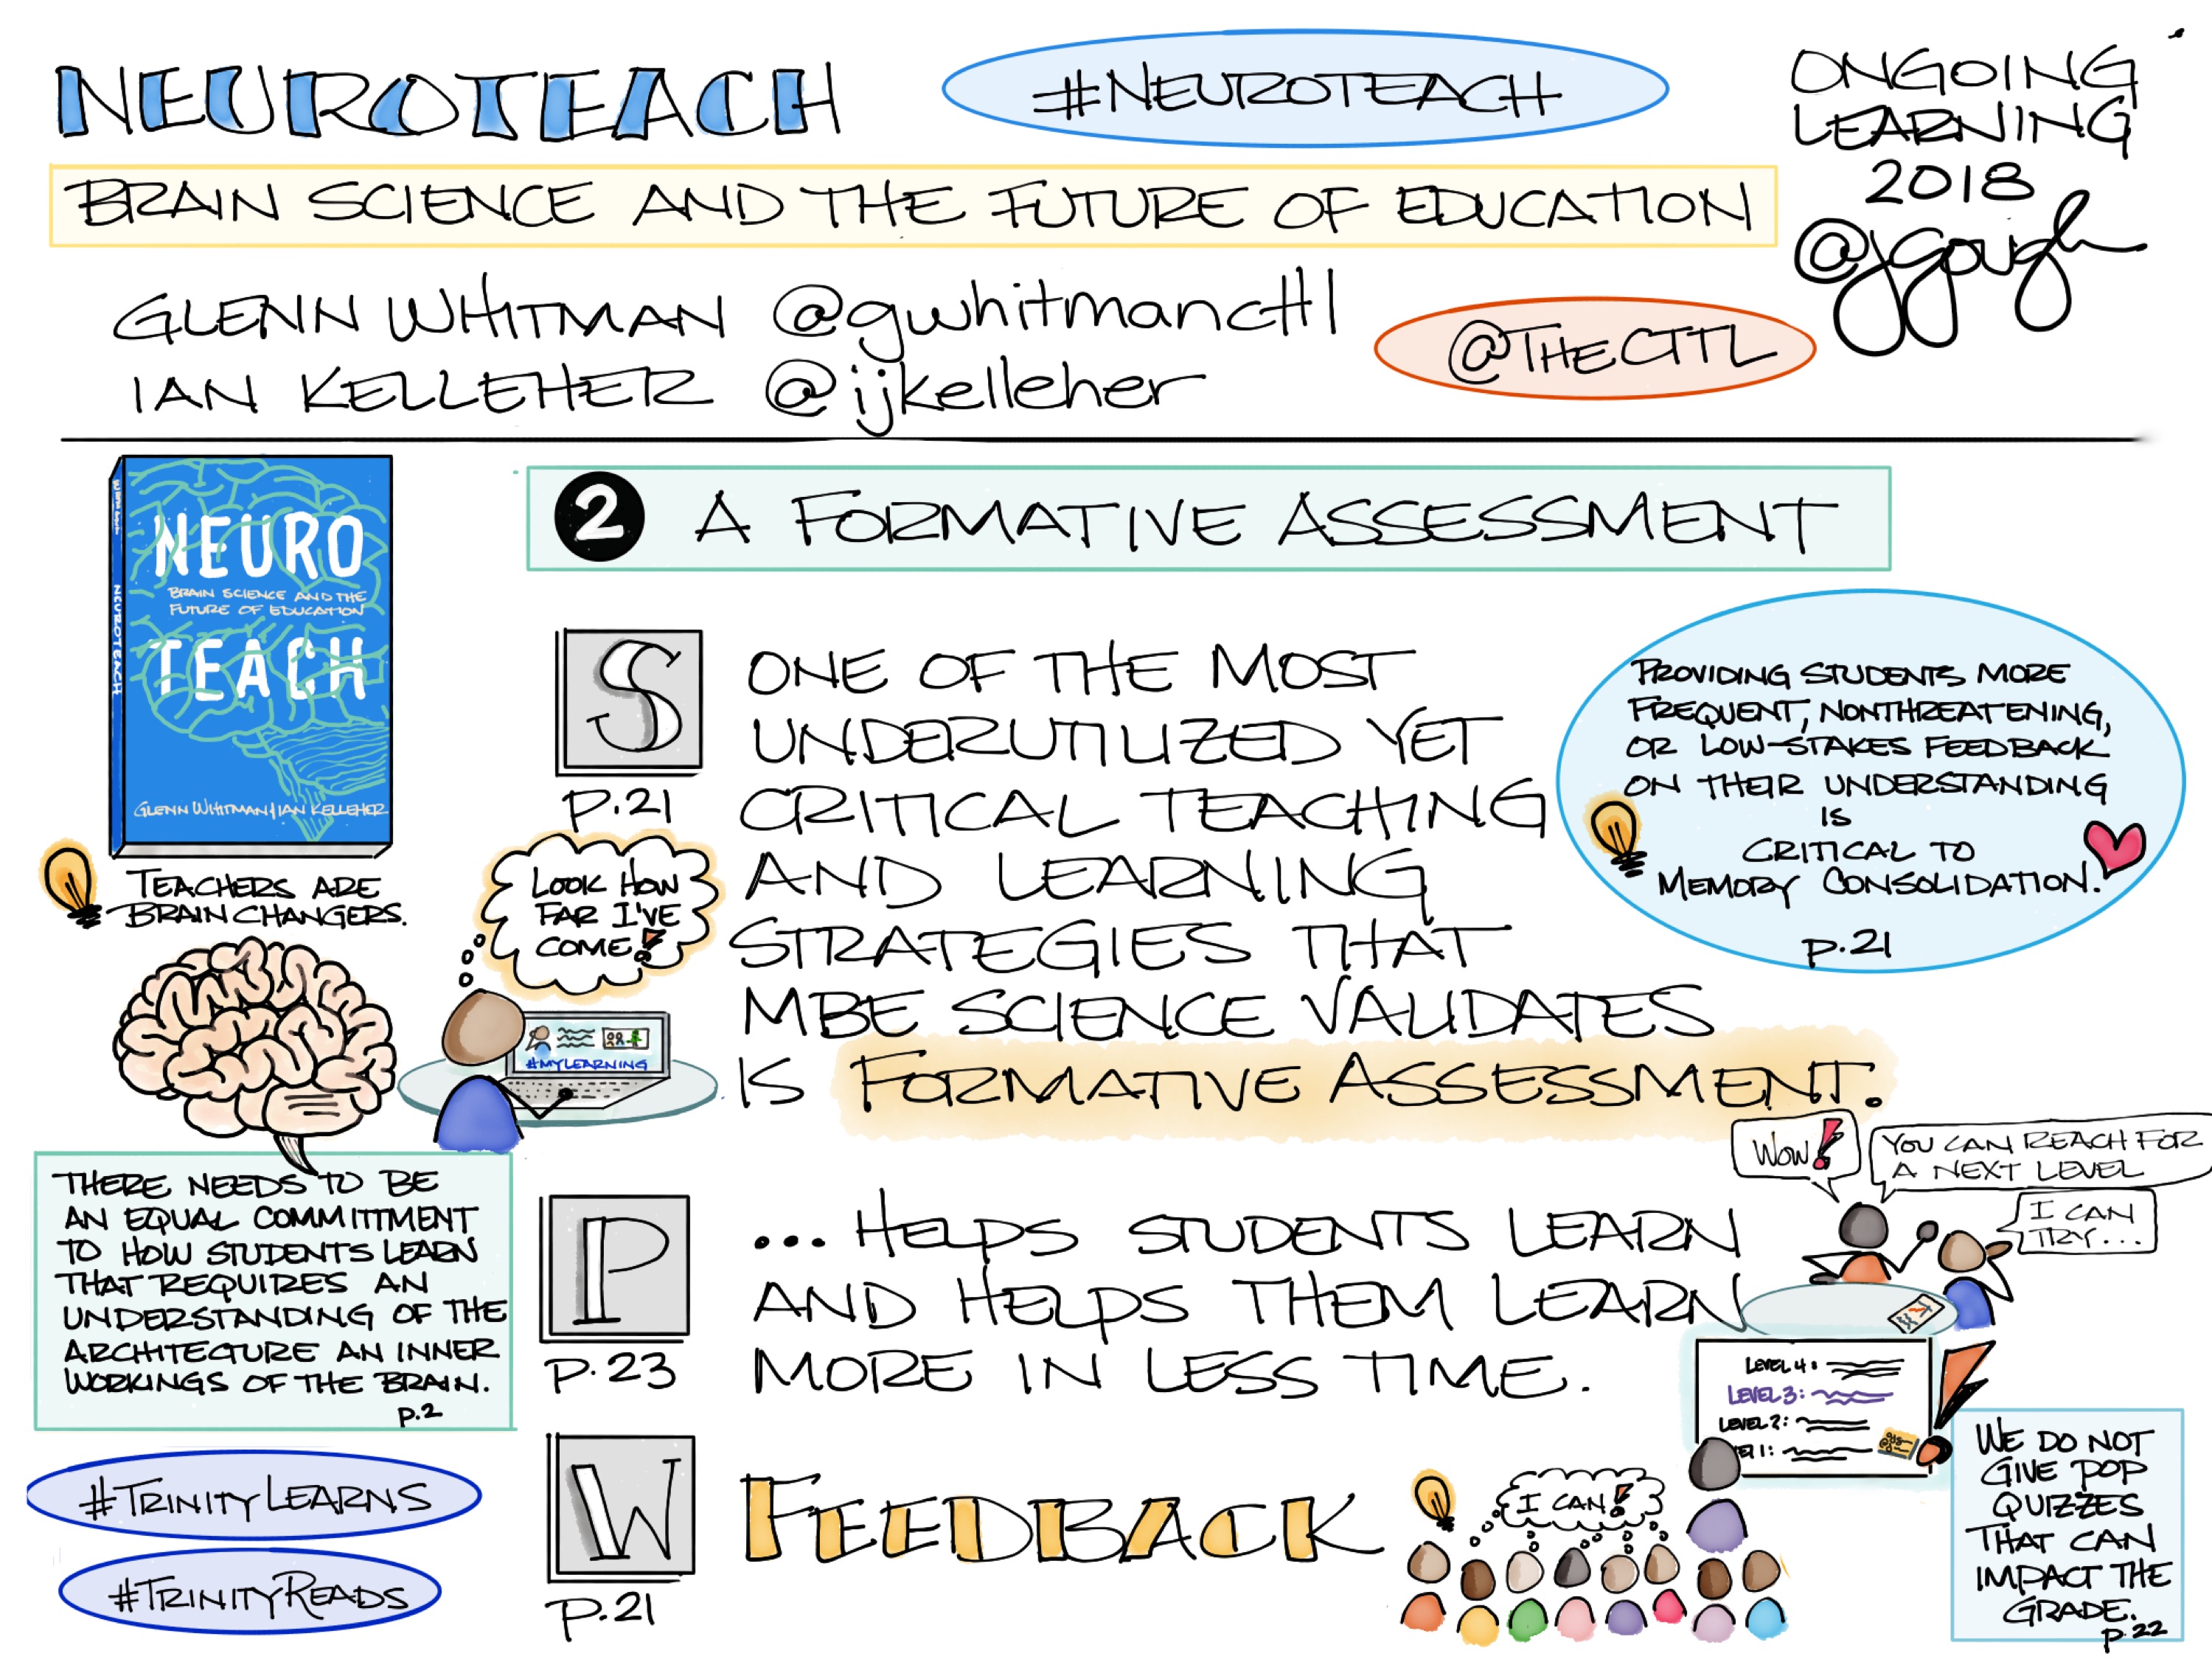 NEUROTEACH
#NEUROTEACH
ONGOING
LEARNING
2018
@jgough
BRAIN SCIENCE AND THE FUTURE OF EDUCATION
GLENN WHITMAN @gwhitmancttl
IAN KELLEHER @ijkelleher
@THECTTL
WHITMAN
NEUROTEACH
NEURO
BRAIN SCIENCE AND THE
FUTURE OF EDUCATION
TEACH
GLENN WHITMAN/IAN KELLEHER
TEACHERS ARE
BRAIN CHANGERS.
2 A FORMATIVE ASSESSMENT
S
P.21
ONE OF THE MOST
UNDERUTILIZED YET
CRITICAL TEACHING
AND LEARNING
STRATEGIES THAT
MBE SCIENCE VALIDATES
IS FORMATIVE ASSESSMENT.
PROVIDING STUDENTS MORE
FREQUENT, NONTHREATENING,
OR LOW-STAKES FEEDBACK
ON THEIR UNDERSTANDING
IS
CRITICAL TO
MEMORY CONSOLIDATION.
P.21
LOOK HOW
FAR I'VE
COME!
#MYLEARNING
THERE NEEDS TO BE
AN EQUAL COMMITTMENT
TO HOW STUDENTS LEARN
THAT REQUIRES AN
UNDERSTANDING OF THE
ARCHITECTURE AN INNER
WORKINGS OF THE BRAIN.
P.2
P
P.23
... HELPS STUDENTS LEARN
AND HELPS THEM LEARN
MORE IN LESS TIME.
WOW!
YOU CAN REACH FOR
A NEXT LEVEL
I CAN
TRY...
LEVEL 4:
LEVEL 3:
LEVEL 2:
#TRINITYLEARNS
#TRINITYREADS
W
P.21
FEEDBACK
I CAN!
WE DO NOT
GIVE POP
QUIZZES
THAT CAN
IMPACT THE
GRADE.
P.22